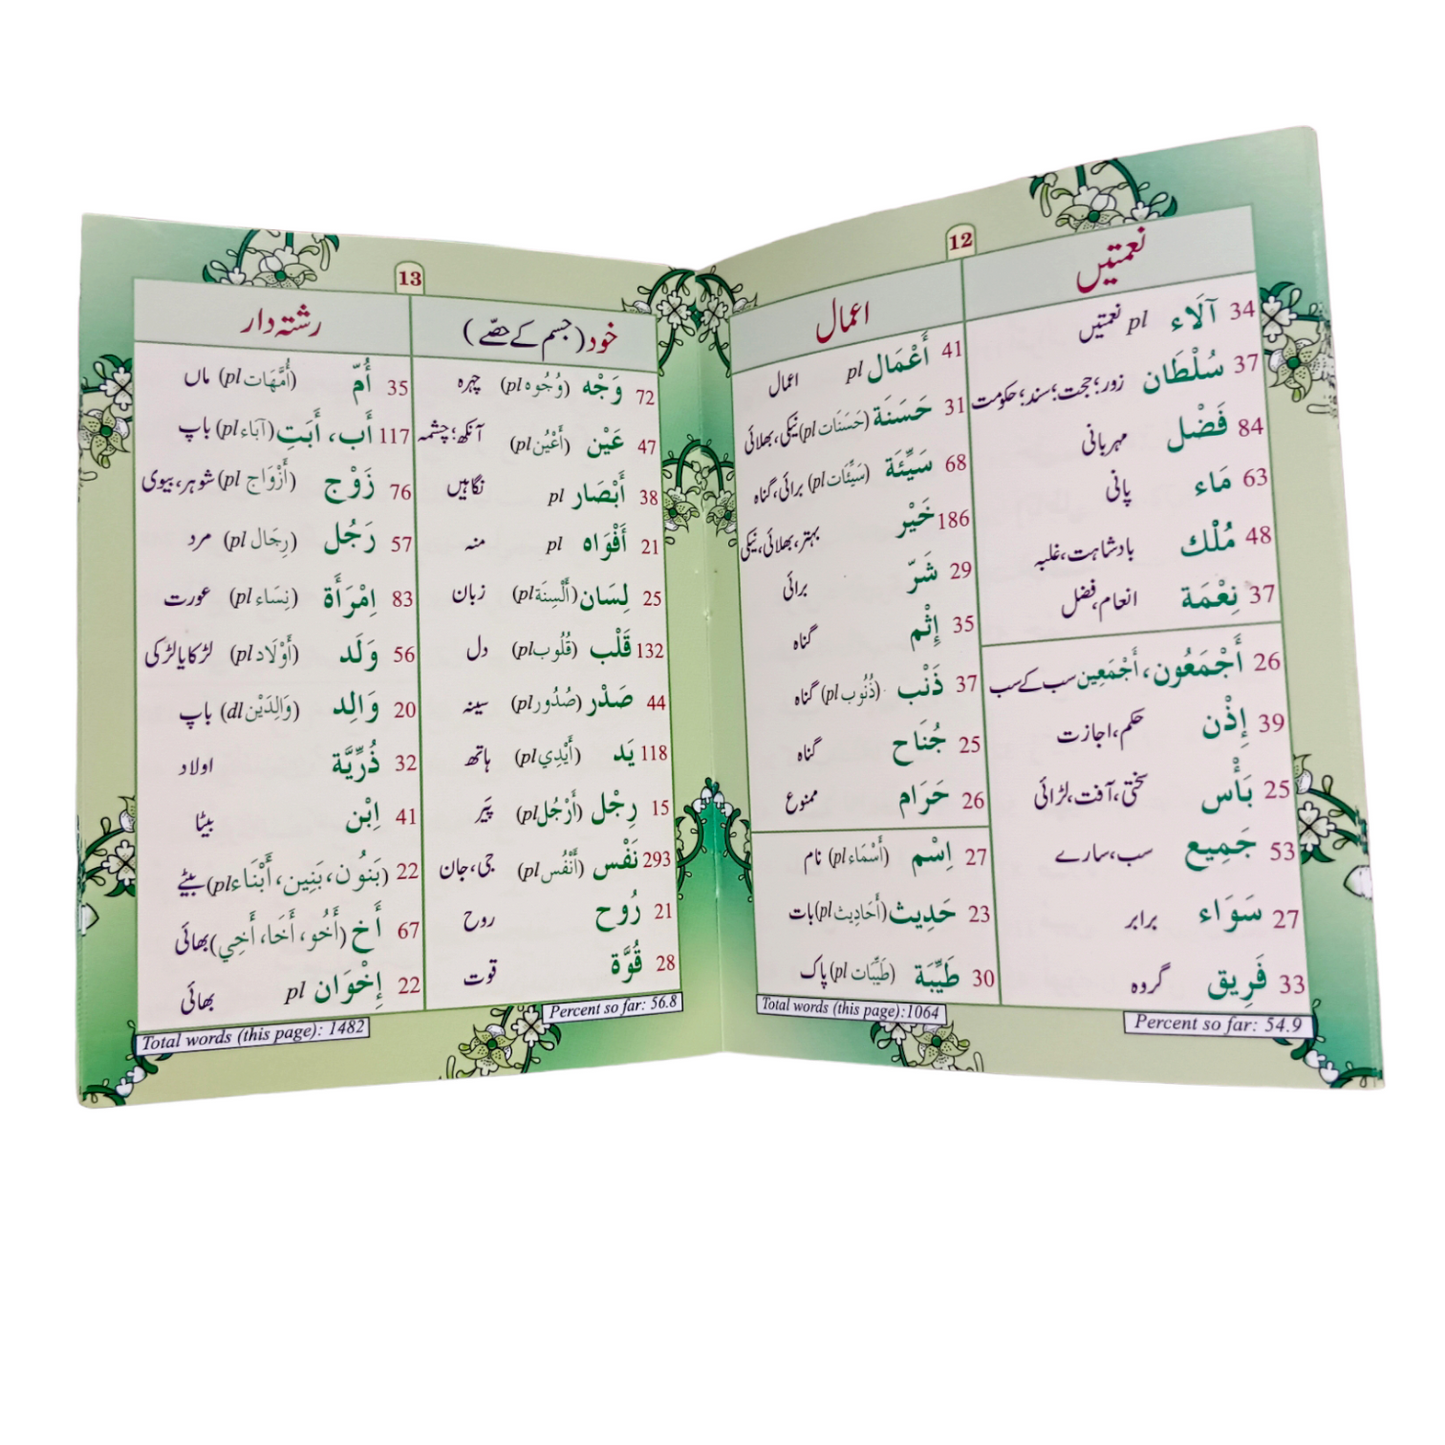 12
نعمتیں
34 آلَاء pl نعمتیں
37 سُلْطَان زور؛حجت؛سند؛حکومت
84 فَضْل مہربانی
63 مَاء پانی
48 مُلْك بادشاہت،غلبہ
37 نِعْمَة انعام،فضل
26 أَجْمَعُون، أَجْمَعِين سب کے سب
39 إِذْن حکم،اجازت
25 بَأْس سختی،آفت،لڑائی
53 جَمِيع سب،سارے
27 سَوَاء برابر
33 فَرِيق گروہ
اعمال
41 أَعْمَال pl اعمال
31 حَسَنَة (حَسَنَات pl) نیکی،بھلائی
68 سَيِّئَة (سَيِّئَات pl) برائی،گناہ
186 خَيْر بہتر،بھلائی،نیکی
29 شَرّ برائی
35 إِثْم گناہ
37 ذَنْب (ذُنُوب pl) گناہ
25 جُنَاح گناہ
26 حَرَام ممنوع
27 اِسْم (أَسْمَاء pl) نام
23 حَدِيث (أَحَادِيث pl) بات
30 طَيِّبَة (طَيِّبَات pl) پاک
Total words (this page):1064
Percent so far: 54.9
13
خود (جسم کے حصّے)
72 وَجْه (وُجُوه pl) چہرہ
47 عَيْن (أَعْيُن pl) آنکھ؛چشمہ
38 أَبْصَار pl نگاہیں
21 أَفْوَاه pl منہ
25 لِسَان (أَلْسِنَة pl) زبان
132 قَلْب (قُلُوب pl) دل
44 صَدْر (صُدُور pl) سینہ
118 يَد (أَيْدِي pl) ہاتھ
15 رِجْل (أَرْجُل pl) پَیر
293 نَفْس (أَنْفُس pl) جی،جان
21 رُوح روح
28 قُوَّة قوت
رشتہ دار
35 أُمّ (أُمَّهَات pl) ماں
117 أَب، أَبَتِ (آبَاء pl) باپ
76 زَوْج (أَزْوَاج pl) شوہر،بیوی
57 رَجُل (رِجَال pl) مرد
83 اِمْرَأَة (نِسَاء pl) عورت
56 وَلَد (أَوْلَاد pl) لڑکا یا لڑکی
20 وَالِد (وَالِدَيْن dl) باپ
32 ذُرِّيَّة اولاد
41 اِبْن بیٹا
22 (بَنُون، بَنِين، أَبْنَاء pl) بیٹے
67 أَخ (أَخُو، أَخَا، أَخِي) بھائی
22 إِخْوَان pl بھائی
Total words (this page): 1482
Percent so far: 56.8